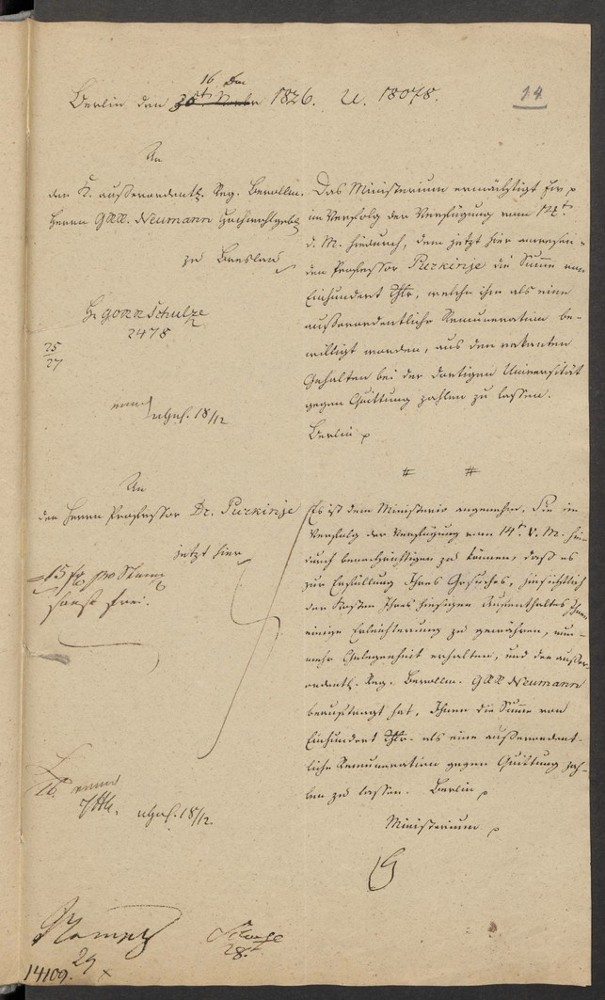 16 Dec
Berlin den 30st Novbr 1826. U. 18078.
14
An
den K. außerordentl. Reg. Bevollm.
Herrn GRR. Neumann Hochwohlgeb.
zu Breslau
H GORR Schulze
2478
25
27
abges. 18/12
Das Ministerium ermächtigt Ew p
im Verfolg der Verfügung vom 14t
d. M. hiedurch, dem jetzt hier anwesen-
den Professor Purkinje die Summe von
Einhundert Thlr, welche ihm als eine
außerordentliche Remuneration be-
willigt worden, aus den vakanten
Gehalten bei der dortigen Universität
gegen Quittung zahlen zu lassen.
Berlin p
# #
An
den Herrn Professor Dr. Purkinje
jetzt hier
15 pro Stemp
sonst frei.
Es ist dem Ministerio angenehm, Sie im
Verfolg der Verfügung vom 14t d. M. hie-
durch benachrichtigen zu können, daß es
zur Erfüllung Ihres Gesuches, hinsichtlich
der Kosten Ihres hiesigen Aufenthaltes Ihnen
einige Erleichterung zu gewähren, nun-
mehr Gelegenheit erhalten, und den außer-
ordentl. Reg. Bevollm. GRR Neumann
beauftragt hat, Ihnen die Summe von
Einhundert Thlr. als eine außerordent-
liche Remuneration gegen Quittung zah-
len zu lassen. Berlin p
Ministerium p
16
abges. 18/12
Kamptz
29
Schulze
28t
14109.